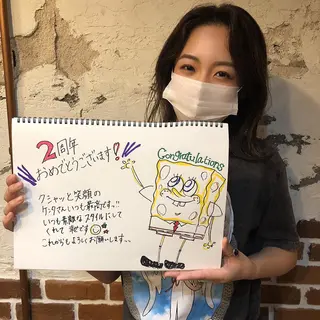 2周年
おめでとうございます!
Congratulations
クシャッと笑顔の
ケンタさんいつも最高です!!
いつも素敵なスタイルにして
くれて 幸せです
これからもよろしくお願いします、、